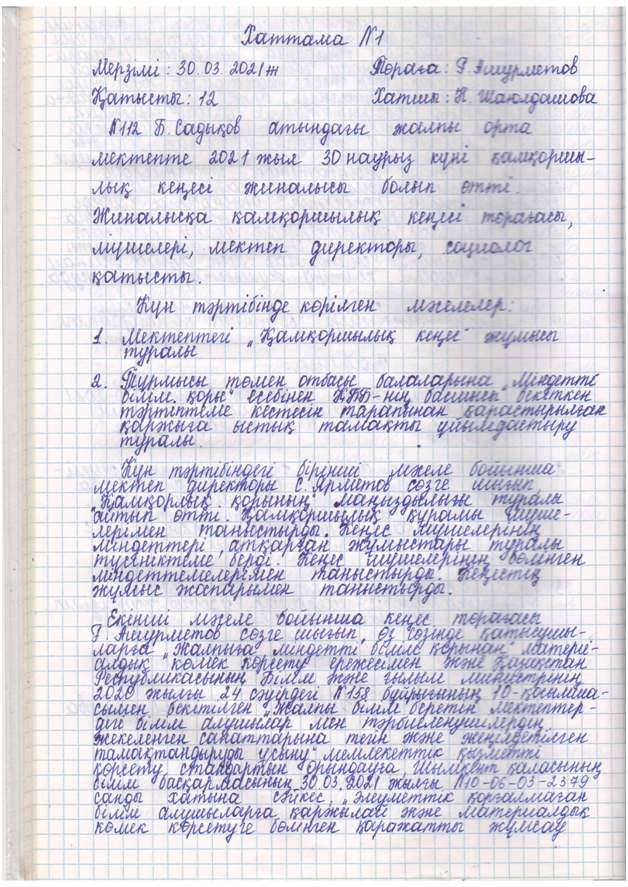 Хаттама №1
Мерзімі: 30.03.2021ж Төраға: Ғ. Әшурметов
Қатысты: 12 Хатшы: Н. Шаюлдашова
№112 Б. Садықов атындағы жалпы орта
мектепте 2021 жыл 30 наурыз күні қамқоршы-
лық кеңесі жиналысы болып өтті.
Жиналысқа қамқоршылық кеңесі төрағасы,
мүшелері, мектеп директоры, социолог
қатысты.
Күн тәртібінде көрілген мәселелер:
1. Мектептегі „Қамқоршылық кеңес" жұмысы
туралы
2. Тұрмысы төмен отбасы балаларына „Міндетті
білім. қоры" есебінен бекіткен
кестесін тарапынан қарастырылған
қаржыға ыстық тамақты ұйымдастыру
туралы.
Күн тәртібіндегі бірінші мәселе бойынша
мектеп директоры С. Ярметов сөзге шығып
„Қамқорлық қорының" маңыздылығы туралы
айтып өтті. Қамқоршылық құрамы мүше-
лерімен таныстырды. Кеңес мүшелерінің
міндеттері, атқарған жұмыстары туралы
түсініктеме берді. Кеңес мүшелерінің бөлінген
міндеттемелерімен таныстырды. Кеңестің
жұмыс жоспарымен таныстырды.
Екінші мәселе бойынша кеңес төрағасы
Ғ. Әшурметов сөзге шығып, өз сөзінде қатысушы-
ларға „Жалпыға міндетті білім қорынан" матери-
алдық көмек көрсету ережесімен және Қазақстан
Республикасының Білім және ғылым министрінің
2020 жылғы 24 сәуірдегі №158 бұйрығының 10-қосымша-
сымен бекітілген „Жалпы білім беретін мектептер-
дегі білім алушылар мен тәрбиеленушілердің
жекеленген санаттарына тегін және жеңілдетілген
тамақтандыруды ұсыну" мемлекеттік қызметті
көрсету стандартын орындауға, Шымкент қаласының
білім басқармасының 30.03.2021 жылғы №10-06-03-2379
санды хатына сәйкес, „Әлеуметтік қорғалмаған
білім алушыларға қаржылай және материалдық
көмек көрсетуге бөлінген қаражатты жұмсау